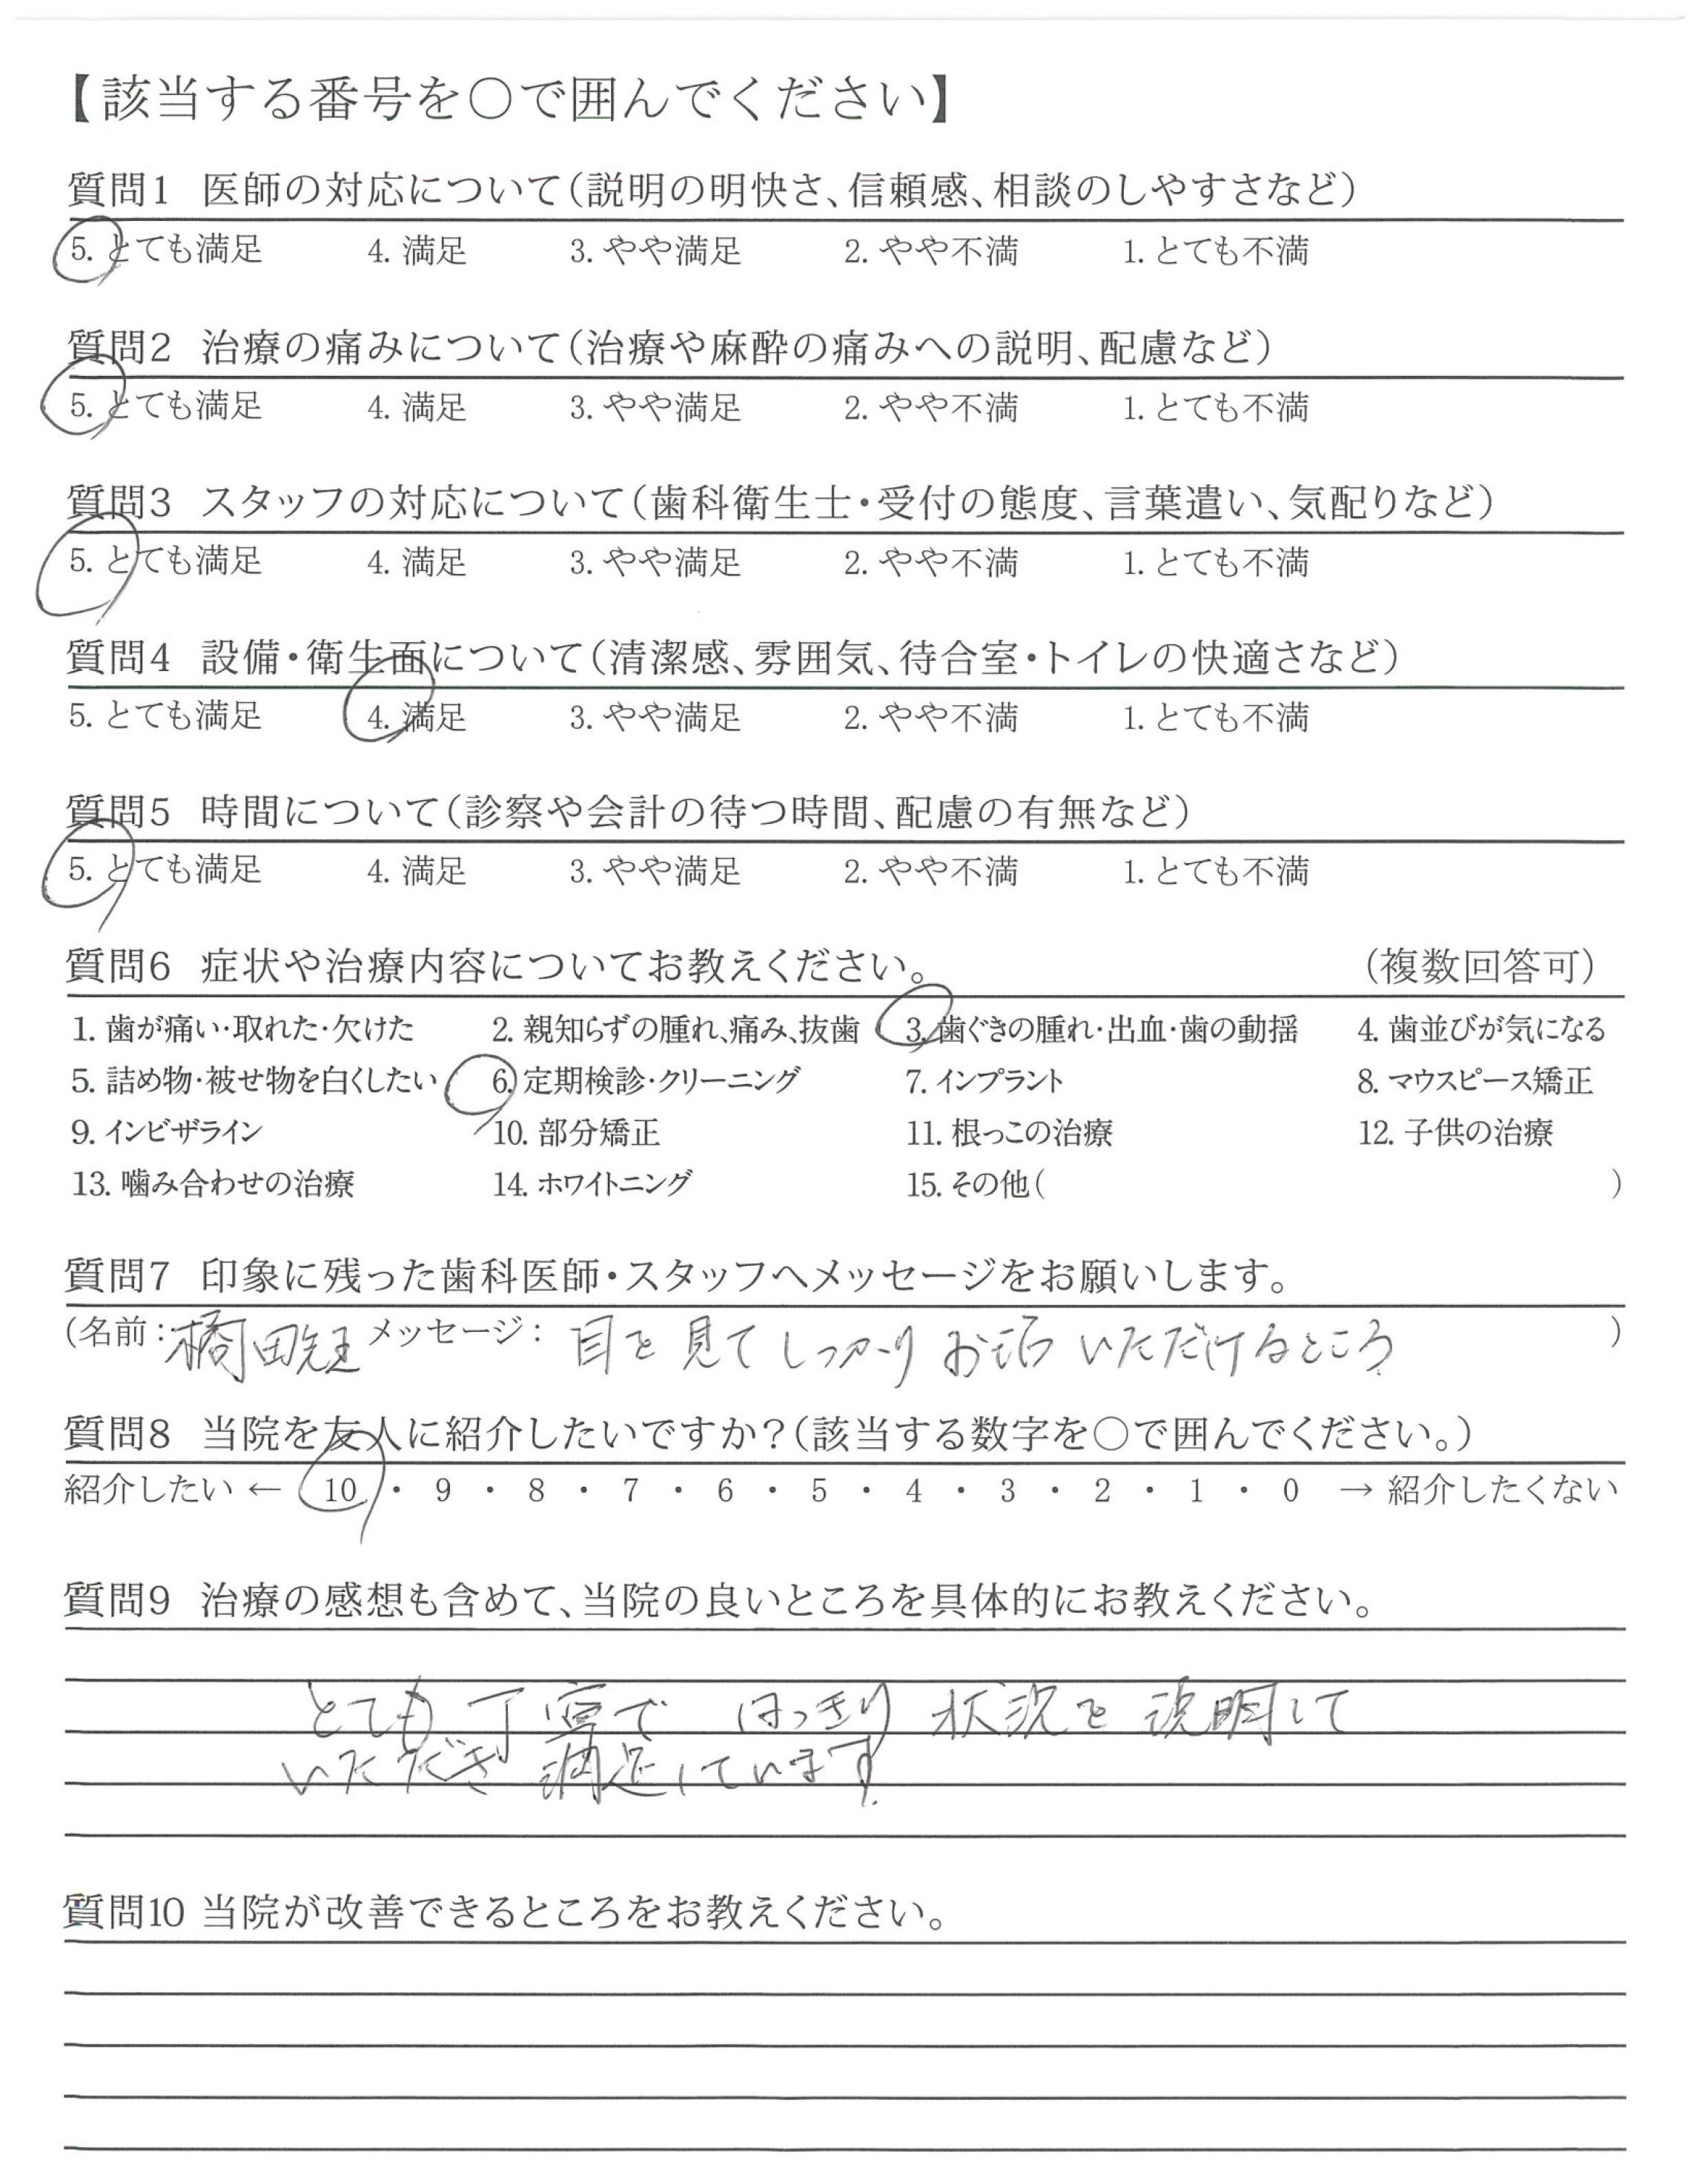 【該当する番号を○で囲んでください】
質問1 医師の対応について（説明の明快さ、信頼感、相談のしやすさなど）
5. とても満足 4. 満足 3. やや満足 2. やや不満 1. とても不満
質問2 治療の痛みについて（治療や麻酔の痛みへの説明、配慮など）
5. とても満足 4. 満足 3. やや満足 2. やや不満 1. とても不満
質問3 スタッフの対応について（歯科衛生士・受付の態度、言葉遣い、気配りなど）
5. とても満足 4. 満足 3. やや満足 2. やや不満 1. とても不満
質問4 設備・衛生面について（清潔感、雰囲気、待合室・トイレの快適さなど）
5. とても満足 4. 満足 3. やや満足 2. やや不満 1. とても不満
質問5 時間について（診察や会計の待つ時間、配慮の有無など）
5. とても満足 4. 満足 3. やや満足 2. やや不満 1. とても不満
質問6 症状や治療内容についてお教えください。 （複数回答可）
1. 歯が痛い・取れた・欠けた 2. 親知らずの腫れ、痛み、抜歯 3. 歯ぐきの腫れ・出血・歯の動揺 4. 歯並びが気になる
5. 詰め物・被せ物を白くしたい 6. 定期検診・クリーニング 7. インプラント 8. マウスピース矯正
9. インビザライン 10. 部分矯正 11. 根っこの治療 12. 子供の治療
13. 噛み合わせの治療 14. ホワイトニング 15. その他（ ）
質問7 印象に残った歯科医師・スタッフへメッセージをお願いします。
（名前：橋田先生 メッセージ： 目を見てしっかりお話いただけるところ ）
質問8 当院を友人に紹介したいですか？（該当する数字を○で囲んでください。）
紹介したい ← 10 ・ 9 ・ 8 ・ 7 ・ 6 ・ 5 ・ 4 ・ 3 ・ 2 ・ 1 ・ 0 → 紹介したくない
質問9 治療の感想も含めて、当院の良いところを具体的にお教えください。
とても丁寧で はっきり 状況を説明して
いただき 満足しています.
質問10 当院が改善できるところをお教えください。